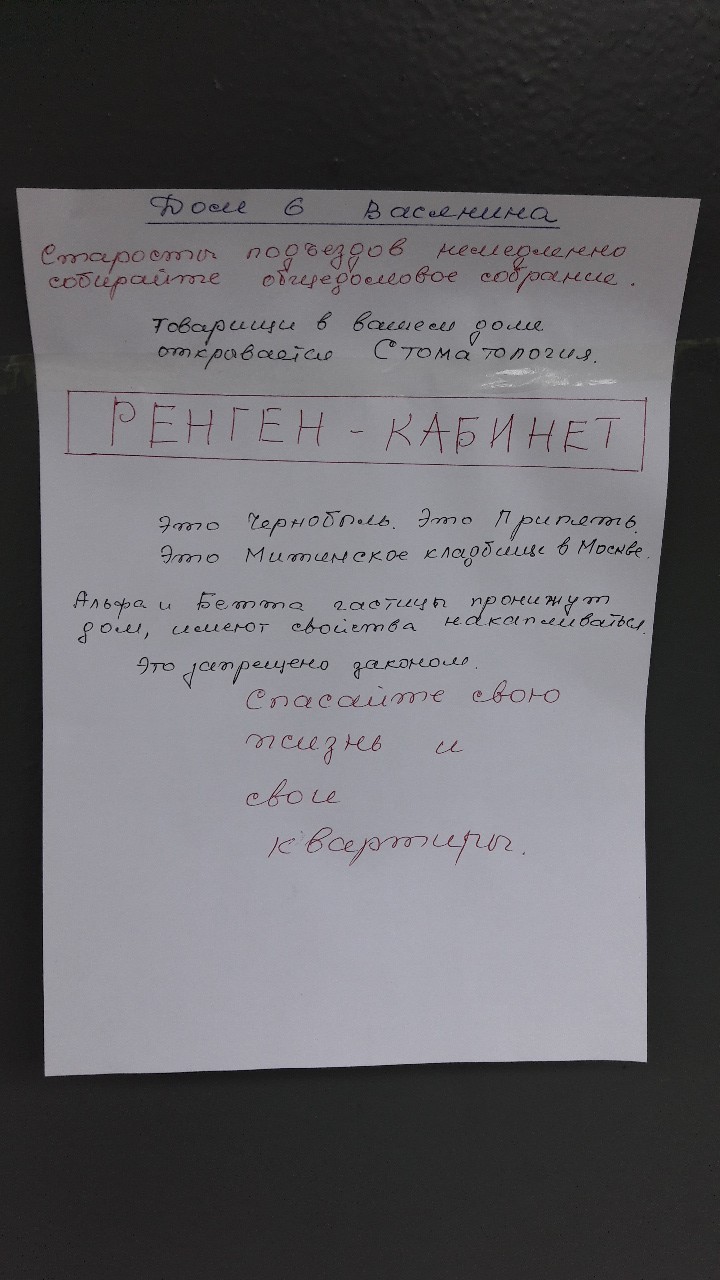 Дом 6 Васянина
Старосты подъездов немедленно
собирайте общедомовое собрание.
Товарищи в вашем доме
открывается Стоматология.
РЕНГЕН - КАБИНЕТ
Это Чернобыль. Это Припять.
Это Митинское кладбище в Москве.
Альфа и Бетта частицы пронижут
дом, имеют свойства накапливаться.
Это запрещено законом.
Спасайте свою
жизнь и
свои
квартиры.